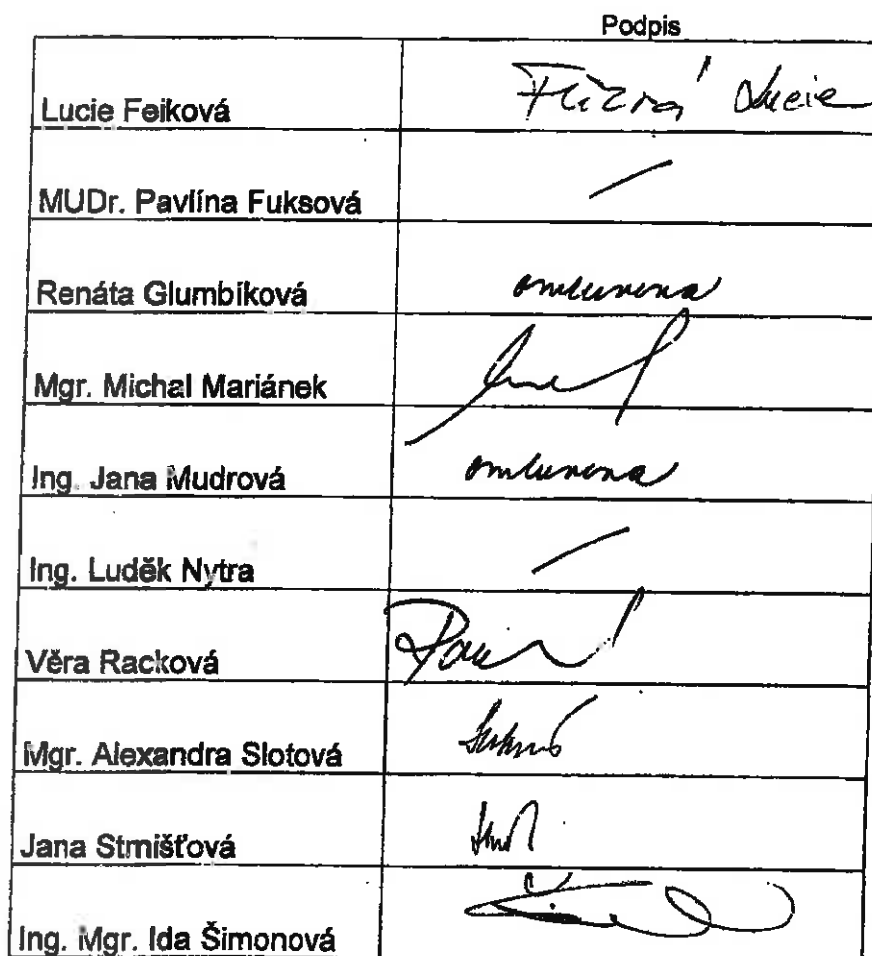 Podpis
Lucie Feiková
Lucie
MUDr. Pavlína Fuksová
Renáta Glumbíková omluvena
Mgr. Michal Mariánek
Ing. Jana Mudrová omluvena
Ing. Luděk Nytra
Věra Racková
Mgr. Alexandra Slotová
Jana Strnišťová
Ing. Mgr. Ida Šimonová